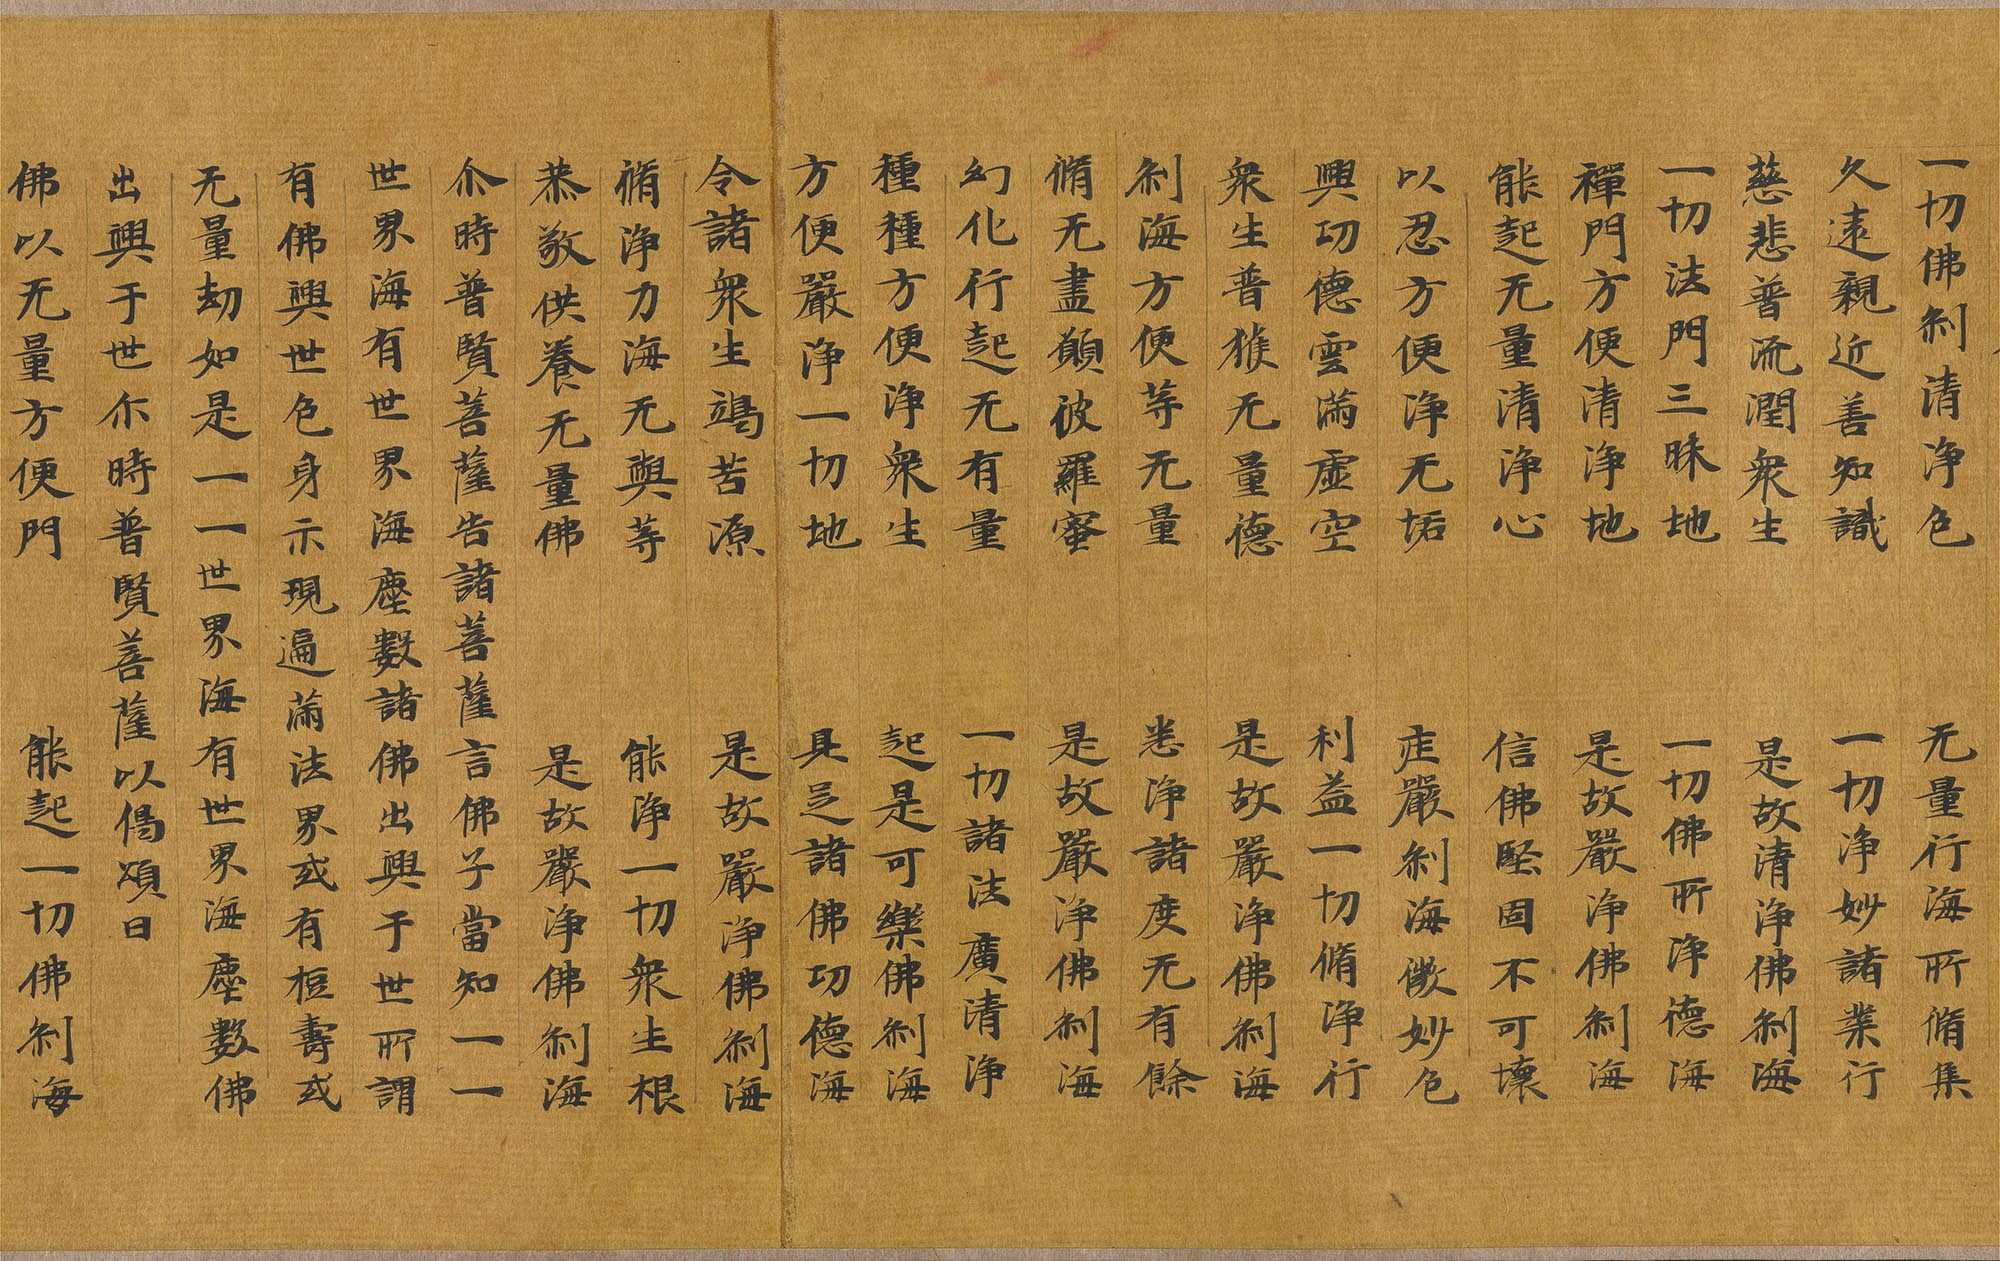 一切佛刹清浄色 无量行海所脩集
久遠親近善知識 一切浄妙諸業行
慈悲普流潤衆生 是故清浄佛刹海
一切法門三昧地 一切佛所浄德海
禪門方便清浄地 是故嚴浄佛刹海
能起无量清浄心 信佛堅固不可壞
以忍方便浄无垢 庄嚴刹海微妙色
興功德雲滿虛空 利益一切脩浄行
衆生普獲无量德 是故嚴浄佛刹海
刹海方便等无量 悉浄諸度无有餘
脩无盡願彼羅蜜 是故嚴浄佛刹海
幻化行起无有量 一切諸法廣清浄
種種方便浄衆生 起是可樂佛刹海
方便嚴浄一切地 具足諸佛功德海
令諸衆生竭苦源 是故嚴浄佛刹海
脩浄力海无與等 能浄一切衆生根
恭敬供養无量佛 是故嚴浄佛刹海
尒時普賢菩薩告諸菩薩言佛子當知一一
世界海有世界海塵數諸佛出興于世所謂
有佛興世色身示現遍滿法界或有短壽或
无量劫如是一一世界海有世界海塵數佛
出興于世尒時普賢菩薩以偈頌曰
佛以无量方便門 能起一切佛刹海